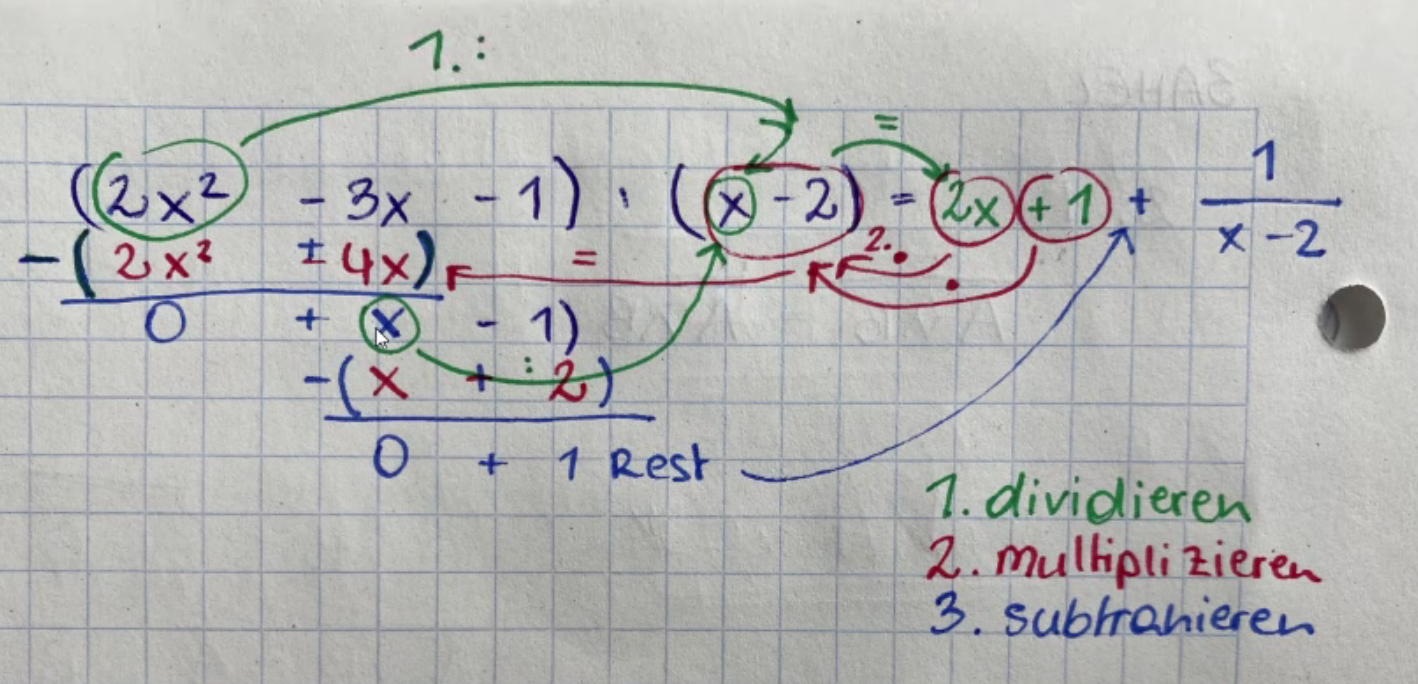 1. :
=
(2x² - 3x - 1) : (x - 2) = 2x + 1 + 1/(x - 2)
-(2x² ± 4x) = 2. •
•
0 + x - 1)
:
-(x + 2)
0 + 1 Rest
1. dividieren
2. multiplizieren
3. subtrahieren